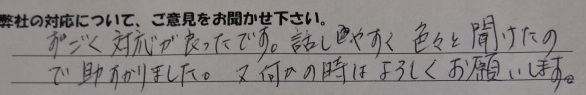 弊社の対応について、ご意見をお聞かせ下さい。
すごく対応が良ったです。話しやすく色々と聞けたの
で助かりました。又何かの時はよろしくお願いします。